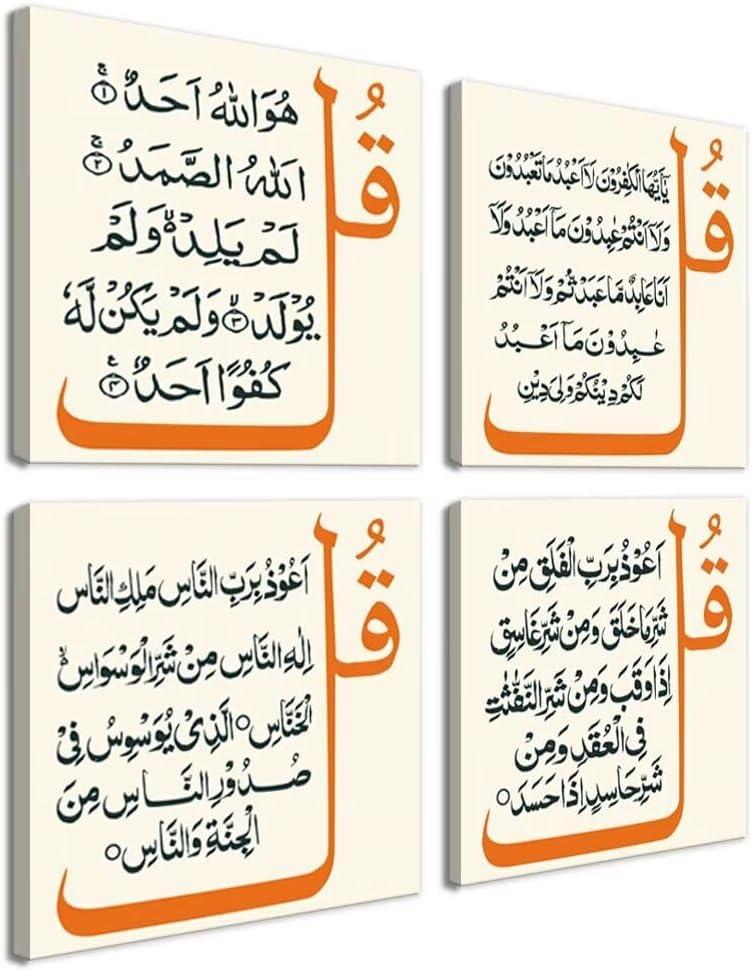 قُلْ
هُوَاللّٰهُ اَحَدٌ ۚ﴿۱﴾
اَللّٰهُ الصَّمَدُ ۚ﴿۲﴾
لَمْ يَلِدْ ۙ وَلَمْ
يُوْلَدْ ۙ﴿۳﴾ وَلَمْ يَكُنْ لَّهٗ
كُفُوًا اَحَدٌ ۠﴿۴﴾
قُلْ
يٰٓاَيُّهَا الْكٰفِرُوْنَ لَاۤ اَعْبُدُ مَا تَعْبُدُوْنَ
وَلَاۤ اَنْتُمْ عٰبِدُوْنَ مَاۤ اَعْبُدُ وَلَاۤ
اَنَا عَابِدٌ مَّا عَبَدْتُّمْ وَلَاۤ اَنْتُمْ
عٰبِدُوْنَ مَاۤ اَعْبُدُ
لَكُمْ دِيْنُكُمْ وَلِيَ دِيْنِ
قُلْ
اَعُوْذُ بِرَبِّ النَّاسِ مَلِكِ النَّاسِ
اِلٰهِ النَّاسِ مِنْ شَرِّ الْوَسْوَاسِ ۙ
الْخَنَّاسِ ○ الَّذِيْ يُوَسْوِسُ فِيْ
صُدُوْرِ النَّاسِ مِنَ
الْجِنَّةِ وَالنَّاسِ ○
قُلْ
اَعُوْذُ بِرَبِّ الْفَلَقِ مِنْ
شَرِّ مَا خَلَقَ وَمِنْ شَرِّ غَاسِقٍ
اِذَا وَقَبَ وَمِنْ شَرِّ النَّفّٰثٰتِ
فِي الْعُقَدِ وَمِنْ
شَرِّ حَاسِدٍ اِذَا حَسَدَ ○